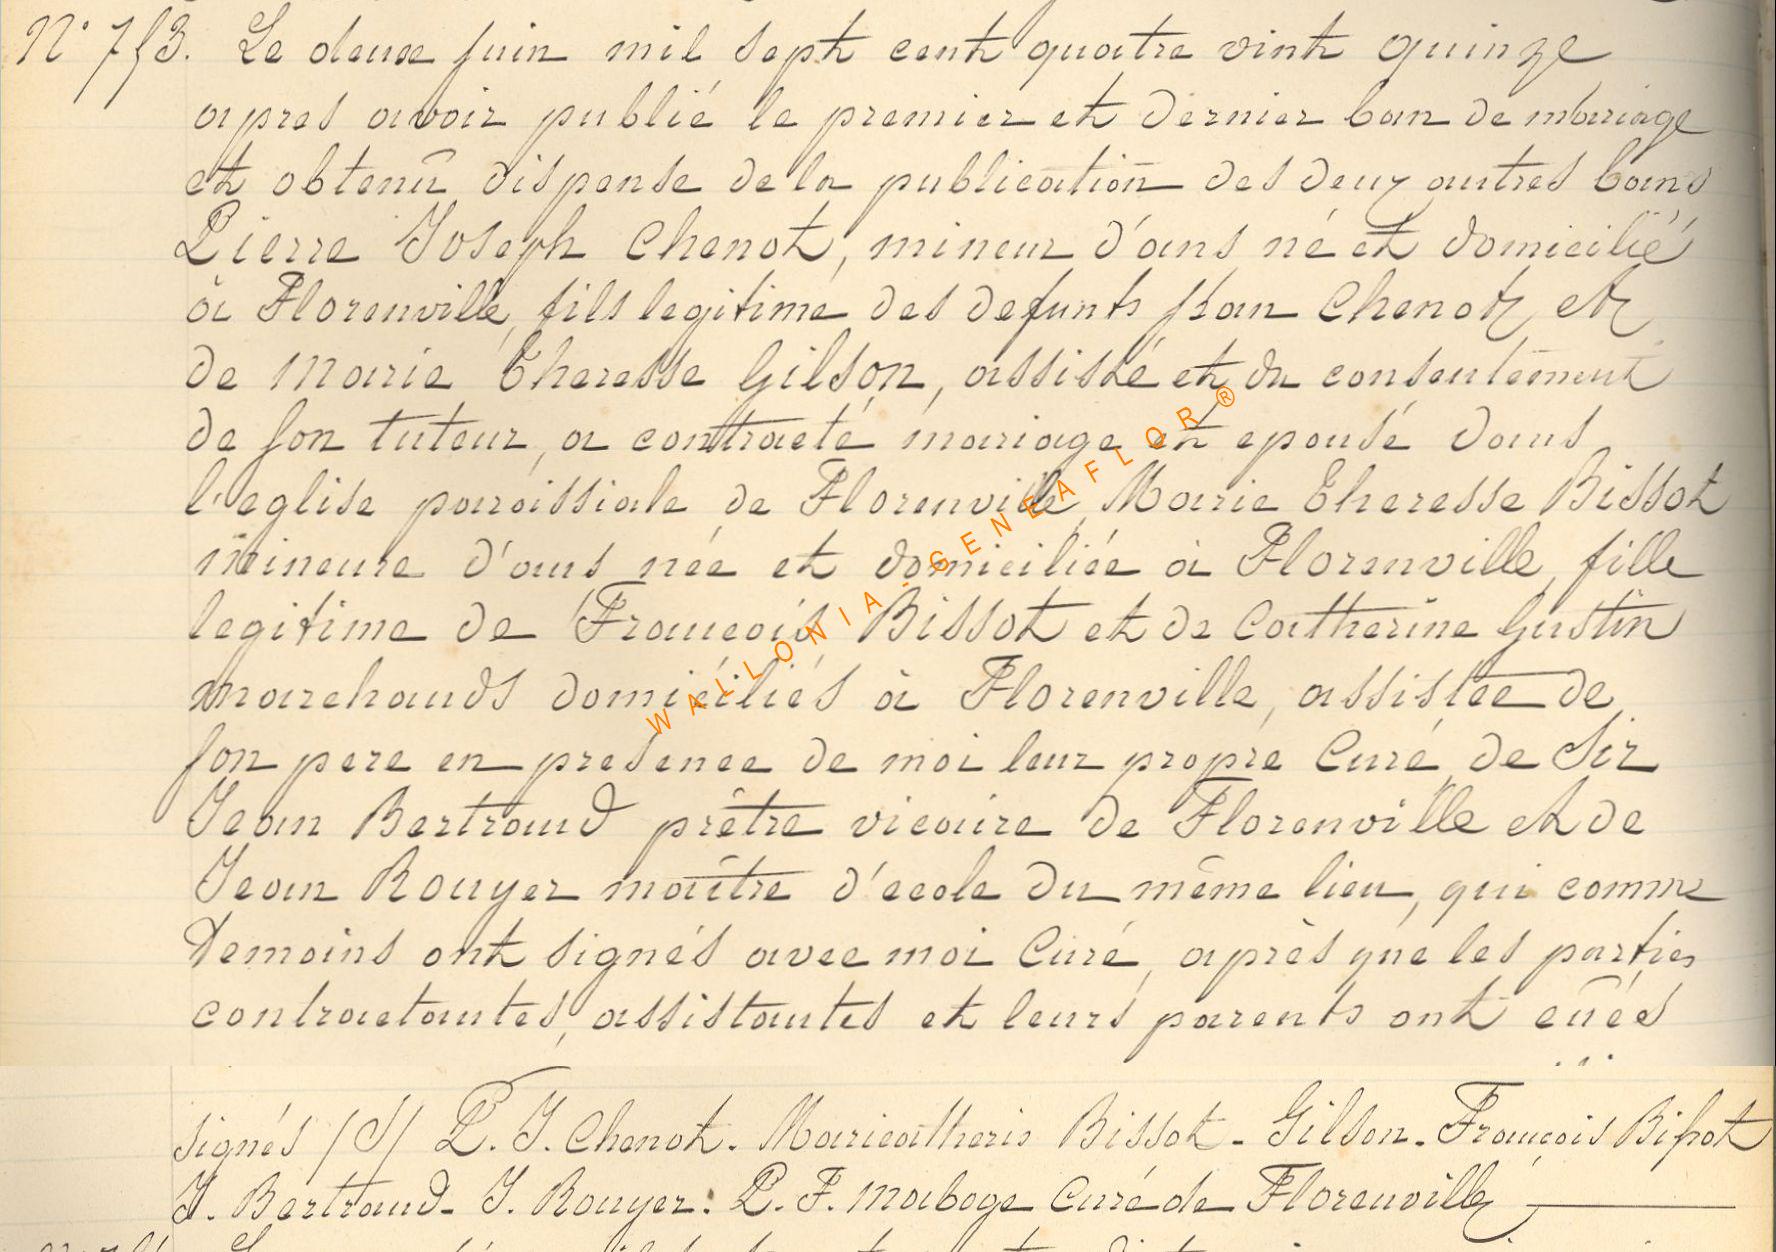 N° 7/3. Le deux juin mil sept cent quatre vint quinze
apres avoir publié le premier et dernier ban de mariage
et obtenu dispense de la publication des deux autres bans
Pierre Joseph Chenot, mineur d'ans né et domicilié
à Florenville, fils legitime des defunts Jean Chenot et
de Marie Theresse Gilson, assisté et du consentement
de son tuteur, a contracté mariage et epousé dans
l'eglise paroissiale de Florenville, Marie Theresse Bissot
mineure d'ans née et domiciliée à Florenville, fille
legitime de François Bissot et de Catherine Gustin
marchands domiciliés à Florenville, assistée de
son pere en presence de moi leur propre Curé, de Sir
Jean Bertrand prêtre vicaire de Florenville et de
Jean Rouyer maître d'ecole du même lieu, qui comme
Temoins ont signés avec moi Curé, après que les parties
contractantes, assistantes et leurs parents ont eûés
signés /S/ P. J. Chenot. Mariecatheris Bissot - Gilson - François Bissot
J. Bertrand - J. Rouyer. P. F. Maboge Curé de Florenville
WALLONIA.GENEAFLOR®